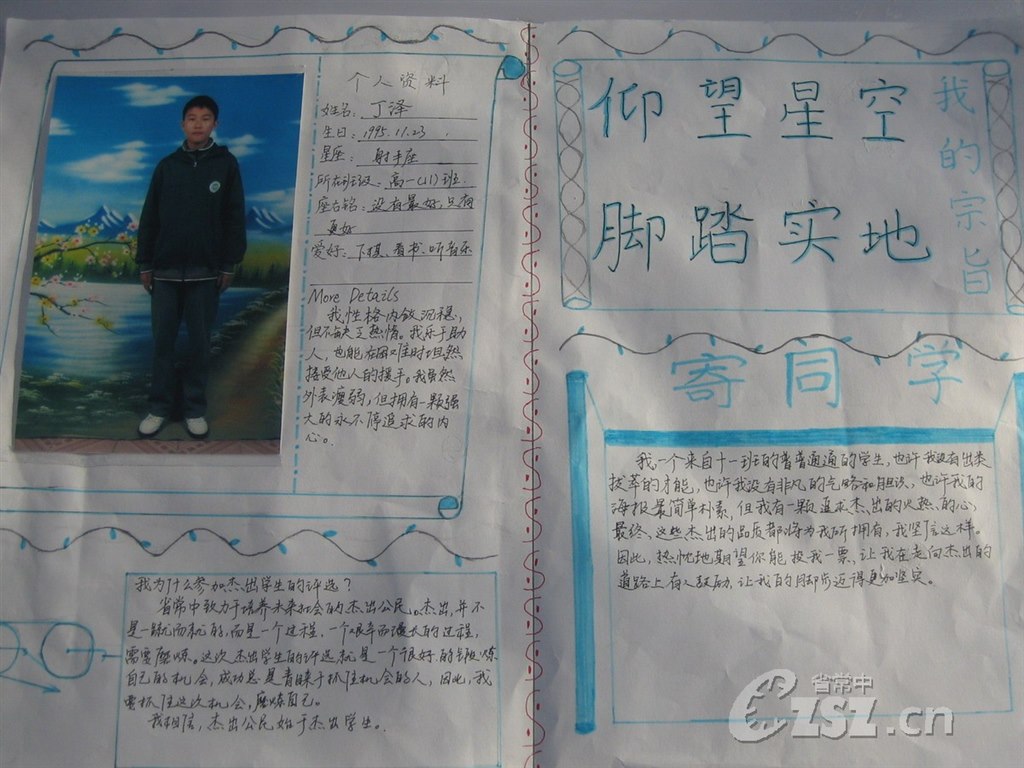 个人资料
姓名：丁泽
生日：1995.11.23
星座：射手座
所在班级：高一(11)班
座右铭：没有最好，只有
更好
爱好：下棋、看书、听音乐
More Details
我性格内敛沉稳，
但不缺乏热情。我乐于助
人，也能在困难时坦然
接受他人的援手。我虽然
外表瘦弱，但拥有一颗强
大的永不停追求的内
心。
我为什么参加杰出学生的评选？
省常中致力于培养未来社会的杰出公民。杰出，并不
是一蹴而就的，而是一个过程，一个艰辛而漫长的过程，
需要磨炼。这次杰出学生的评选就是一个很好的锻炼
自己的机会，成功总是青睐于抓住机会的人，因此，我
要抓住这次机会，磨炼自己。
我相信，杰出公民始于杰出学生。
仰望星空
脚踏实地
我的宗旨
寄同学
我，一个来自十一班的普普通通的学生，也许我没有出类
拔萃的才能，也许我没有非凡的气略和胆识，也许我的
海报最简单朴素，但我有一颗追求杰出的火热的心，
最终，这些杰出的品质都将为我所拥有，我坚信这样。
因此，热忱地期望你能投我一票，让我在走向杰出的
道路上有人鼓励，让我的脚步迈得更加坚实。
省常中
CZSZ.cn